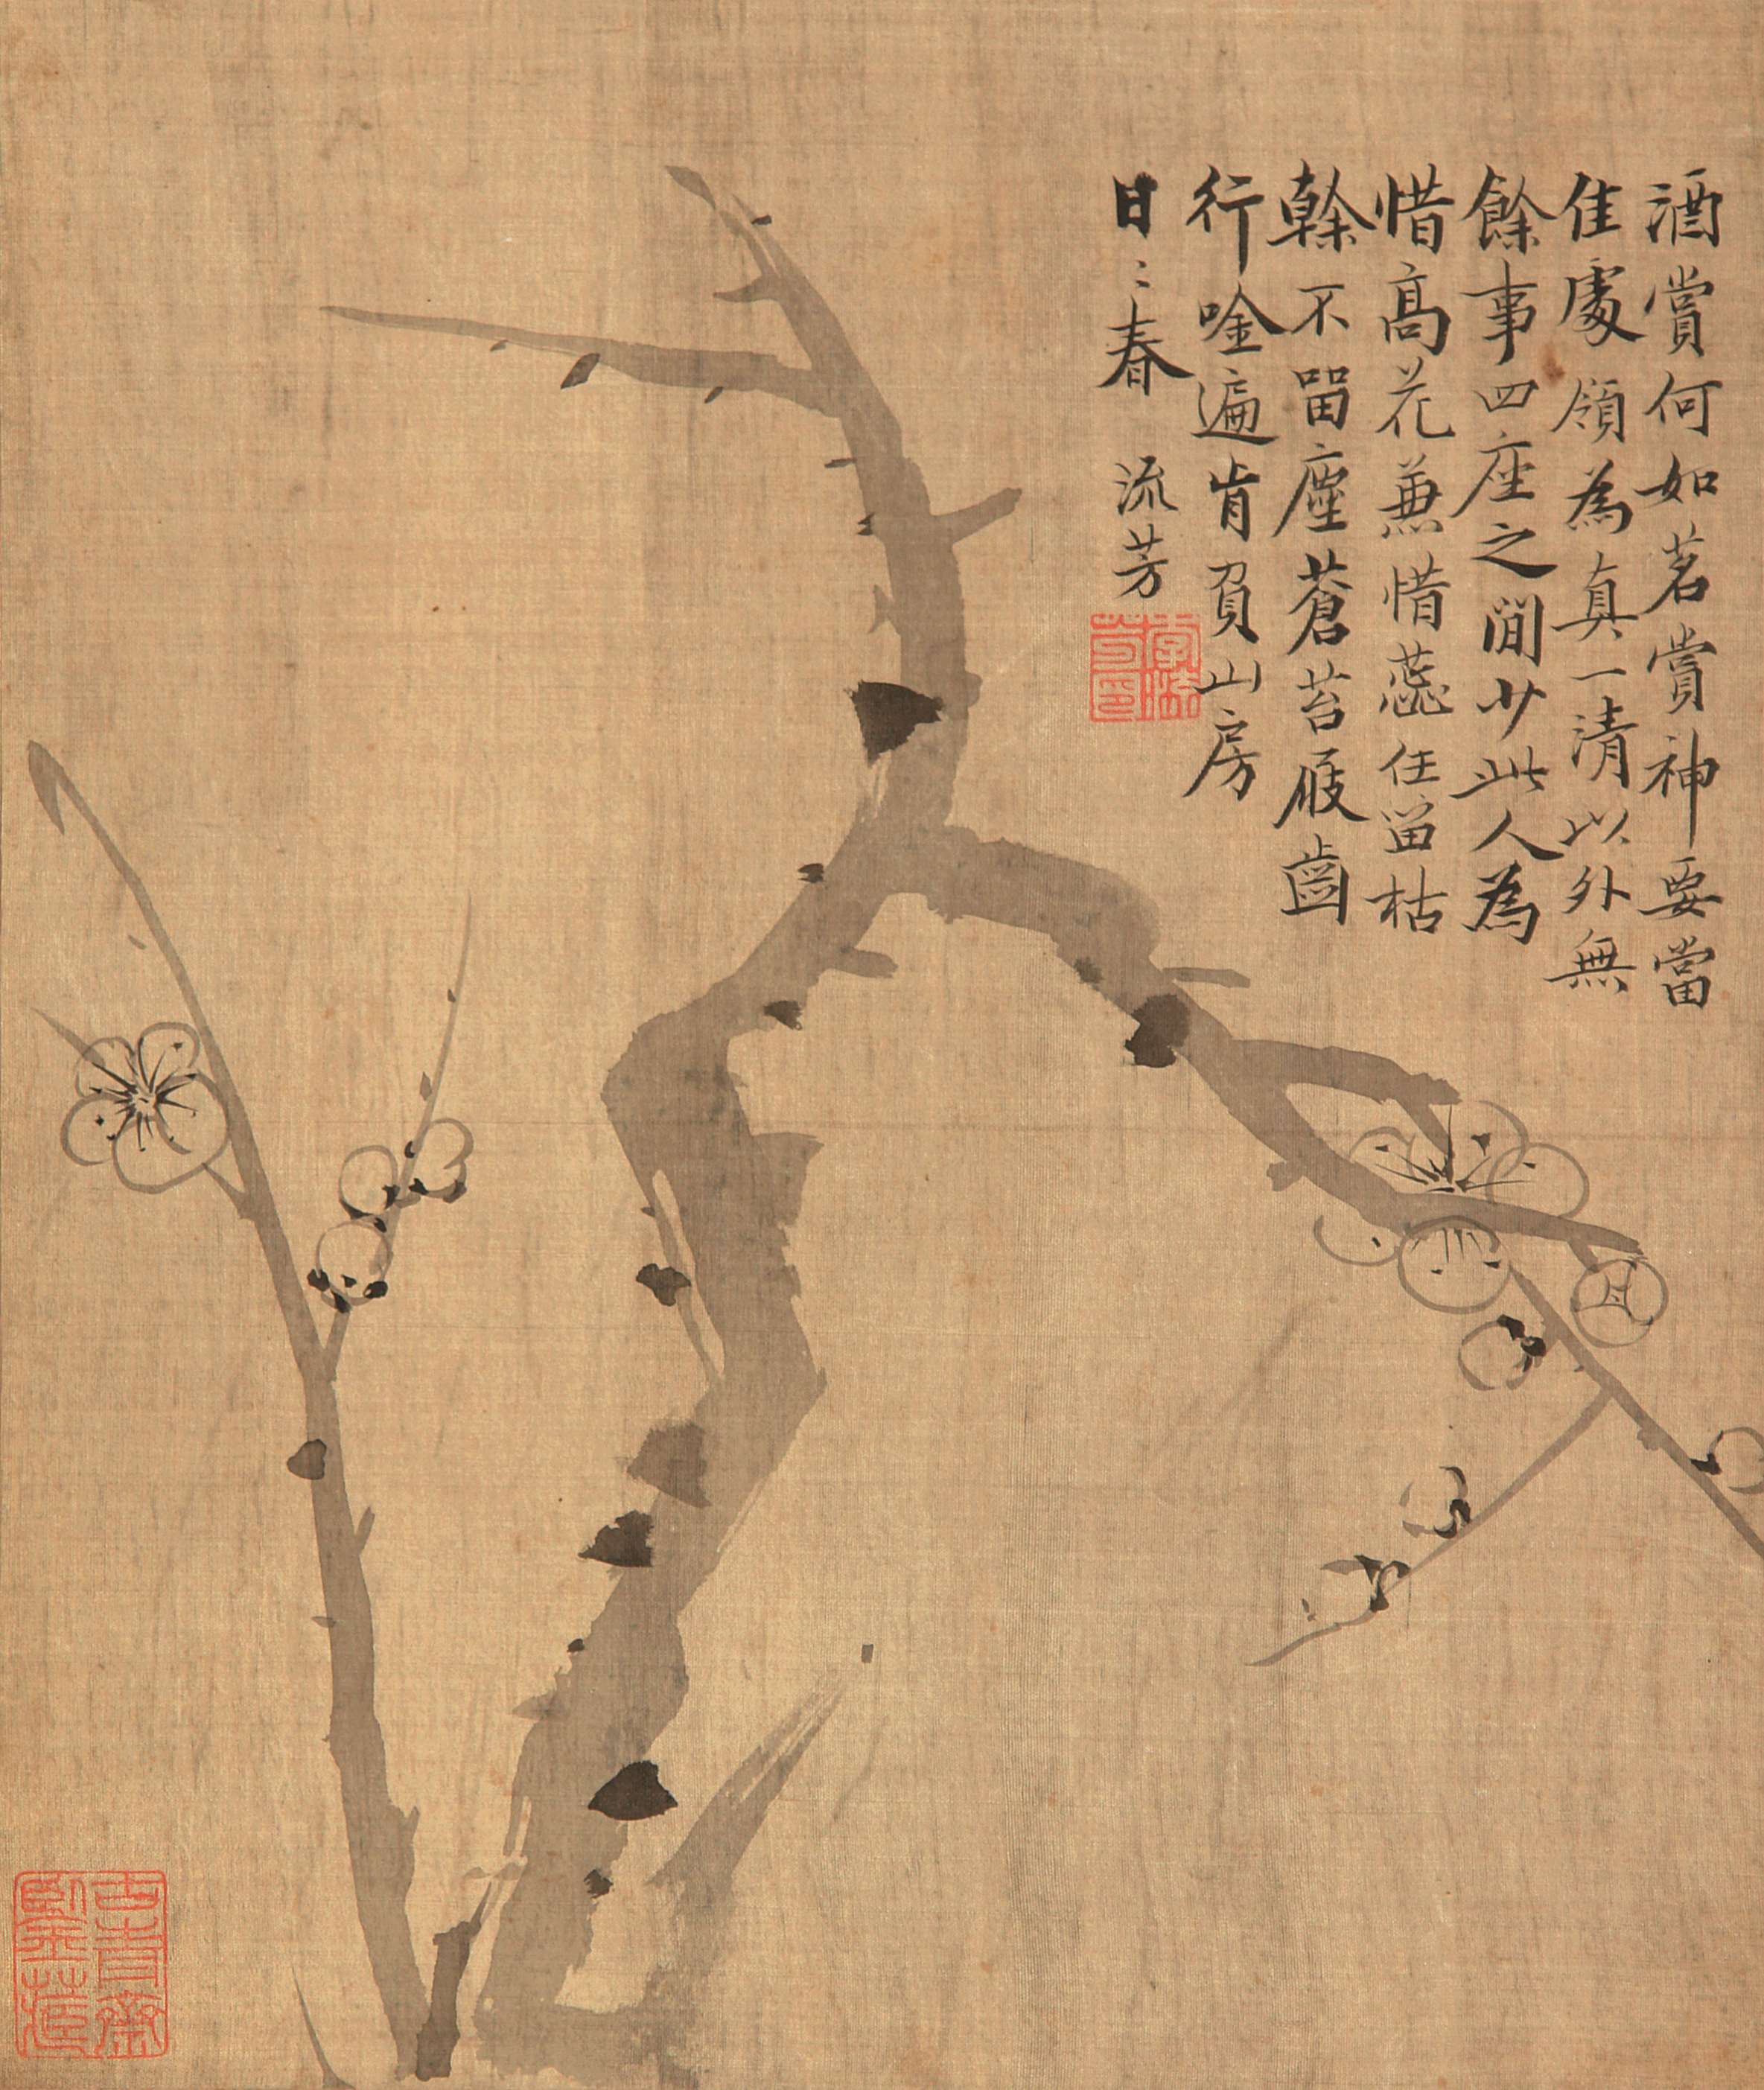 酒賞何如茗賞神要當
佳處領為真一清以外無
餘事四座之閒少此人為
惜高花兼惜蕊任留枯
榦不留塵蒼苔屐齒
行唫遍肯負山房
日〻春 流芳
李流芳印